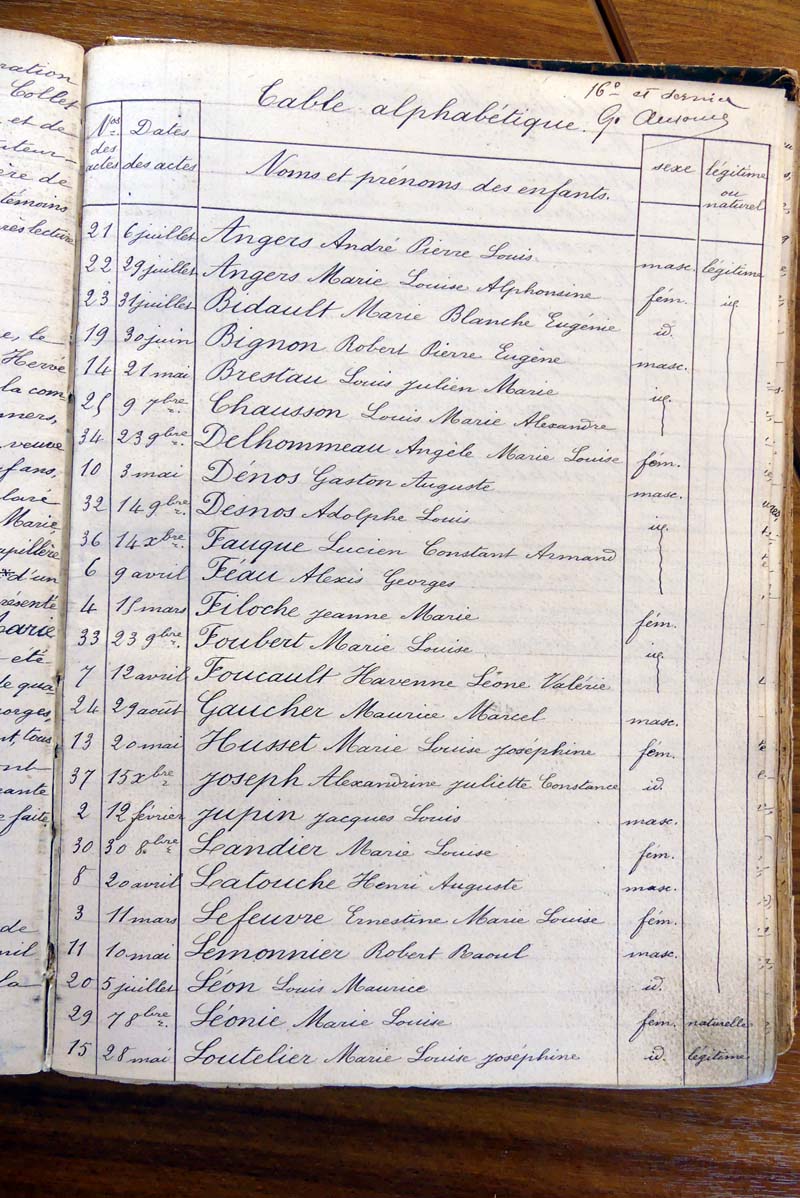 ration
Collet
et de
uteur-
ère de
témoins
rès lecture
e, le
Hervé
la com
mers,
veuve
fans,
laré
Marie
apillère
d'un
résenté
Marie
été
de qua
orges,
nt, tous
ont
ante
faite.
de
mil
la
16e et dernier
Table alphabétique.
Nos des actes
Dates des actes
Noms et prénoms des enfants.
sexe
légitime ou naturel
21 6 juillet Angers André Pierre Louis masc. légitime
22 29 juillet Angers Marie Louise Alphonsine fém. id.
23 31 juillet Bidault Marie Blanche Eugénie id.
19 30 juin Bignon Robert Pierre Eugène masc.
14 21 mai Brestau Louis Julien Marie id.
25 9 7bre. Chausson Louis Marie Alexandre
34 23 9bre. Delhommeau Angèle Marie Louise fém.
10 3 mai Dénos Gaston Auguste masc.
32 14 9bre. Desnos Adolphe Louis id.
36 14 xbre. Fauque Lucien Constant Armand
6 9 avril Féau Alexis Georges
4 15 mars Filoche Jeanne Marie fém.
33 23 9bre. Foubert Marie Louise id.
7 12 avril Foucault Havenne Léone Valérie
24 29 août Gaucher Maurice Marcel masc.
13 20 mai Husset Marie Louise Joséphine fém.
37 15 xbre. Joseph Alexandrine Juliette Constance id.
2 12 février Jupin Jacques Louis masc.
30 30 8bre. Landier Marie Louise fém.
8 20 avril Latouche Henri Auguste masc.
3 11 mars Lefeuvre Ernestine Marie Louise fém.
11 10 mai Lemonnier Robert Raoul masc.
20 5 juillet Léon Louis Maurice id.
29 7 8bre. Léonie Marie Louise fém. naturelle
15 28 mai Loutelier Marie Louise Joséphine id. légitime